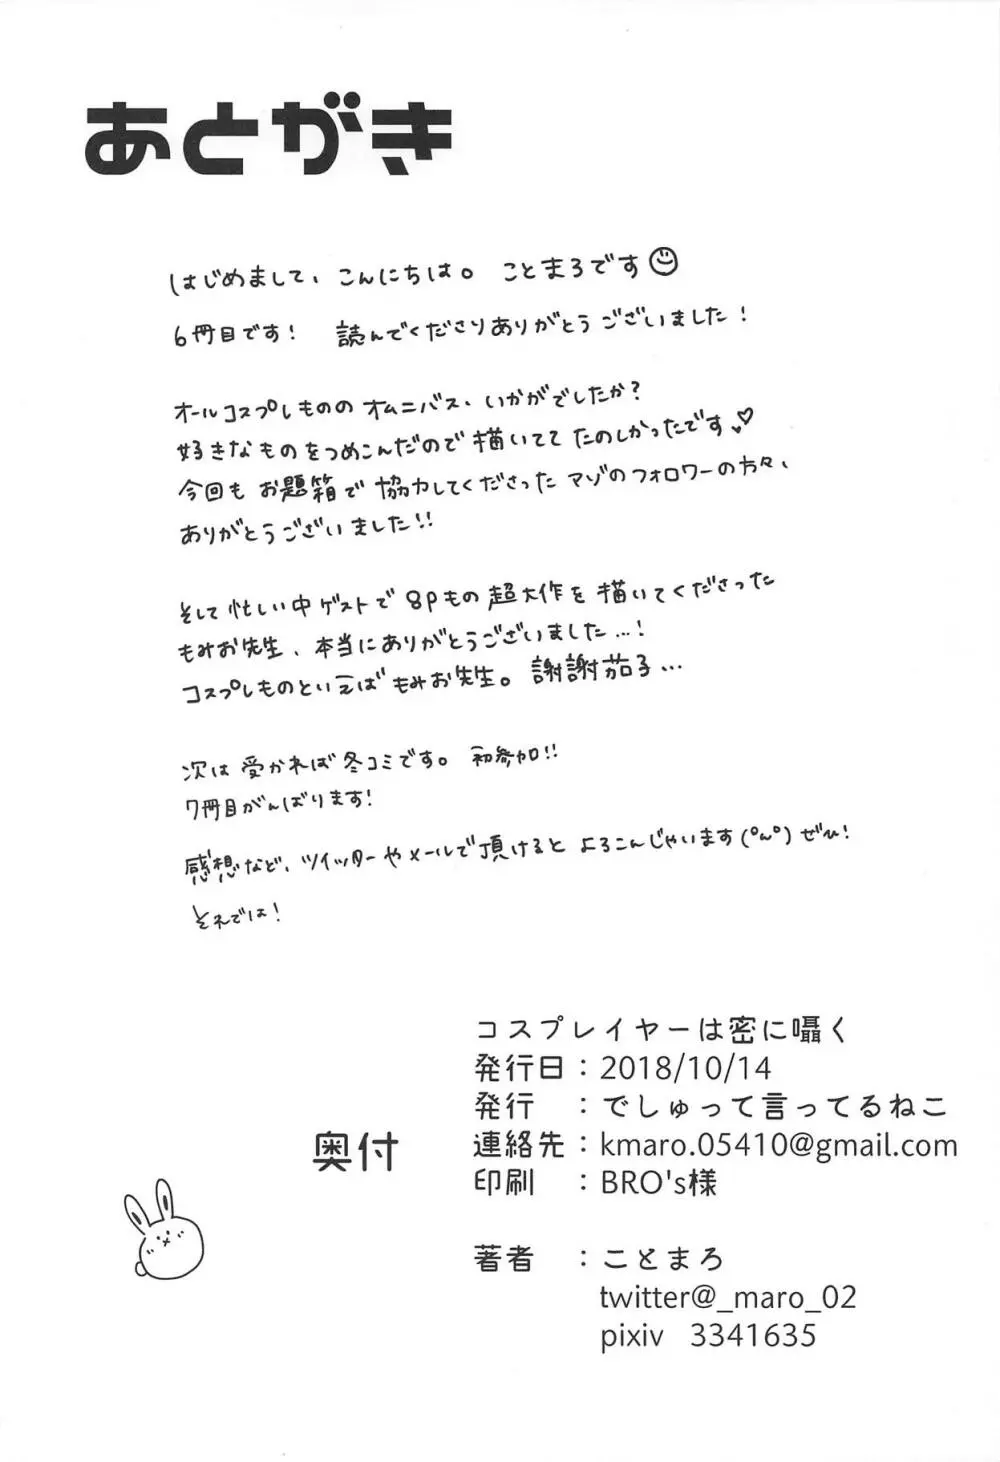 あとがき
はじめまして、こんにちは。 ことまろです
6冊目です! 読んでくださりありがとうございました!
オールコスプレもののオムニバス、いかがでしたか?
好きなものをつめこんだので描いてて たのしかったです♡
今回も お題箱で 協力してくださった マゾのフォロワーの方々、
ありがとうございました!!
そして忙しい中ゲストで 8Pもの 超大作を 描いてくださった
もみお先生、本当にありがとうございました…!
コスプレものといえば もみお先生。謝謝茄子…
次は 受かれば 冬コミです。 初参加!!
7冊目がんばります!
感想など、ツイッターやメールで頂けると よろこんじゃいます(^q^)ぜひ!
それでは!
コスプレイヤーは密に囁く
発行日:2018/10/14
発行 :でしゅって言ってるねこ
奥付
連絡先:kmaro.05410@gmail.com
印刷 :BRO's様
著者 :ことまろ
twitter@_maro_02
pixiv 3341635